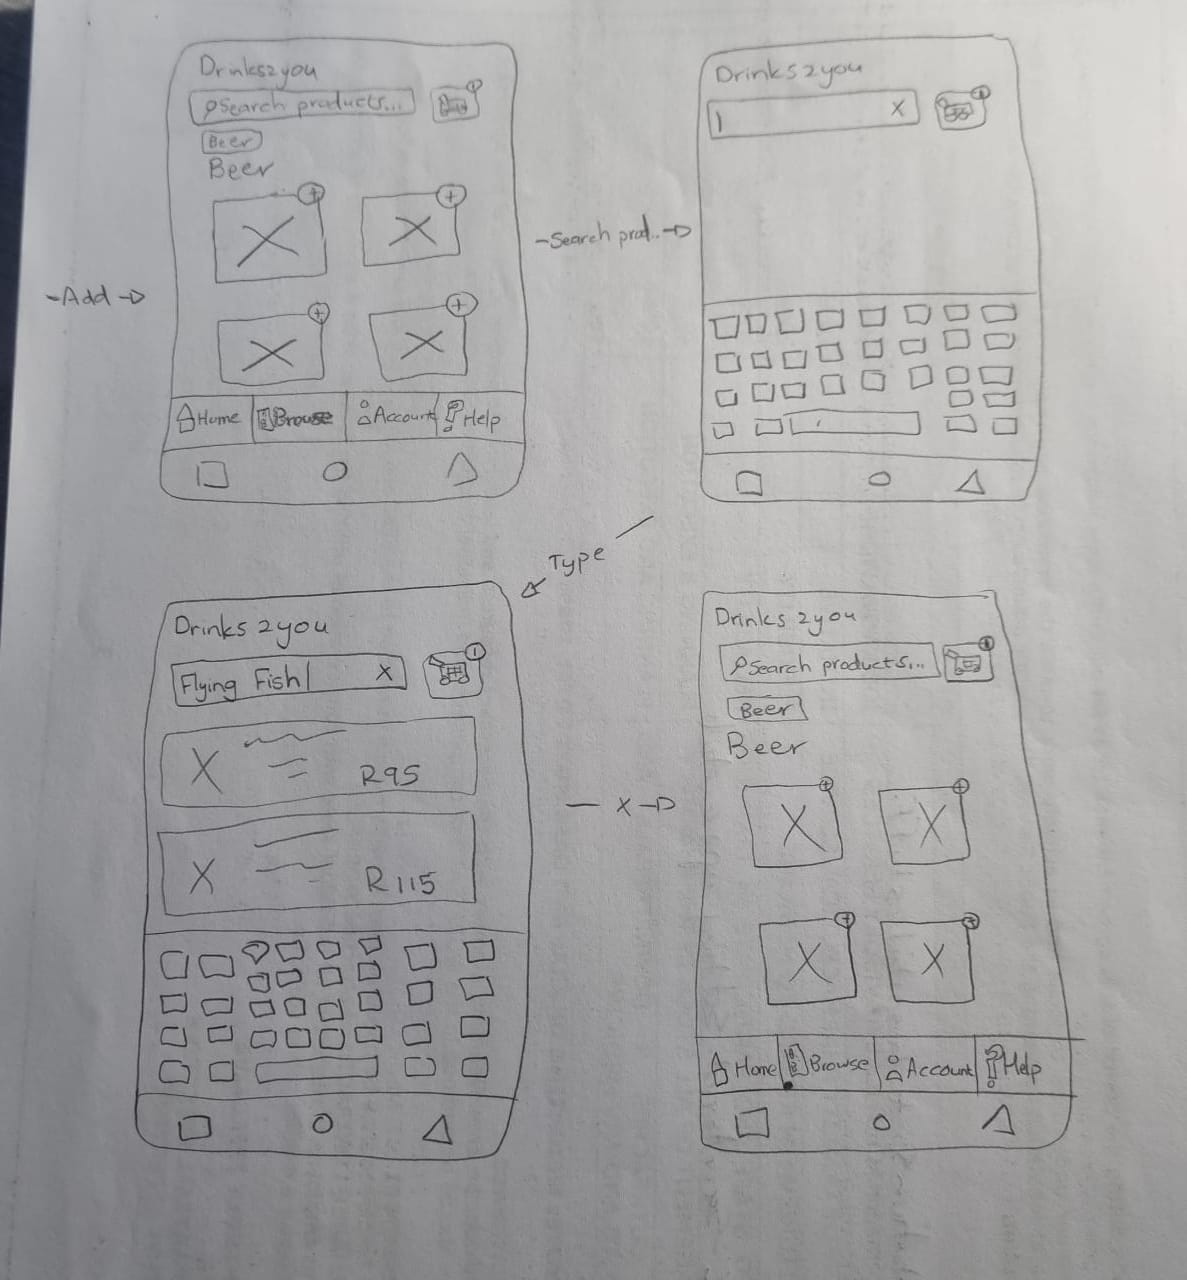 Drinks2you
Search products...
1
Beer
Beer
+
+
+
+
Home
Browse
Account
Help
-Add->
-Search prod..->
Drinks 2you
X
1
Type
Drinks 2you
Flying Fish|
X
1
R95
R115
- x ->
Drinks 2you
Search products...
Beer
Beer
+
+
+
+
Home
Browse
Account
Help